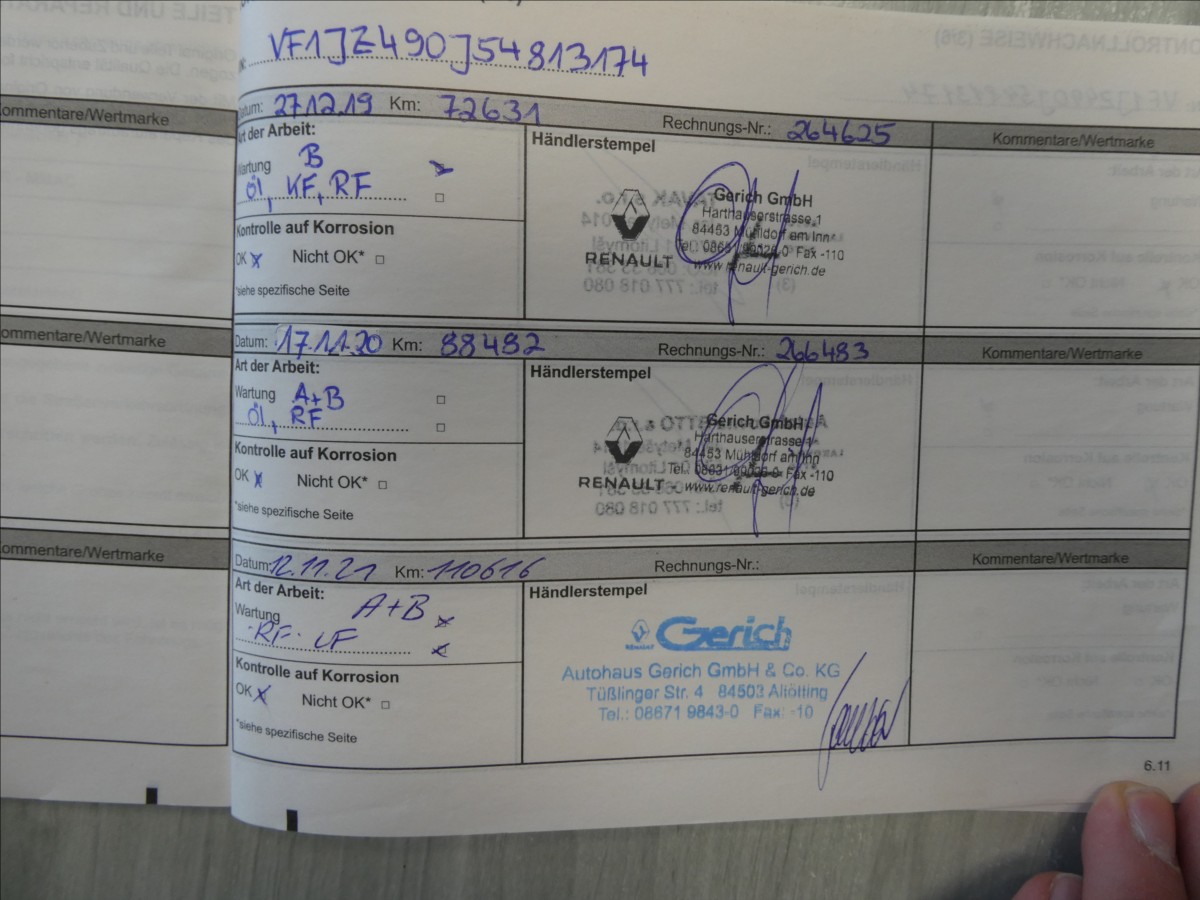 VF1JZ490J54813174
Kommentare/Wertmarke
Datum: 27.12.19 Km: 72631 Rechnungs-Nr.: 264625 Kommentare/Wertmarke
Art der Arbeit:
Wartung B
Öl, KF, RF
Kontrolle auf Korrosion
OK X Nicht OK* □
*siehe spezifische Seite
Händlerstempel
RENAULT
Gerich GmbH
Harthauserstrasse 1
84453 Mühldorf am Inn
Fax -110
www.renault-gerich.de
ommentare/Wertmarke
Datum: 17.11.20 Km: 88482 Rechnungs-Nr.: 266483 Kommentare/Wertmarke
Art der Arbeit:
Wartung A+B □
Öl, RF □
Kontrolle auf Korrosion
OK X Nicht OK* □
*siehe spezifische Seite
Händlerstempel
RENAULT
Gerich GmbH
Harthauserstrasse 1
84453 Mühldorf am Inn
Fax -110
www.renault-gerich.de
ommentare/Wertmarke
Datum: 12.11.21 Km: 110616 Rechnungs-Nr.: Kommentare/Wertmarke
Art der Arbeit:
Wartung A+B X
RF LF X
Kontrolle auf Korrosion
OK X Nicht OK* □
*siehe spezifische Seite
Händlerstempel
RENAULT Gerich
Autohaus Gerich GmbH & Co. KG
Tüßlinger Str. 4 84503 Altötting
Tel.: 08671 9843-0 Fax: -10
6.11